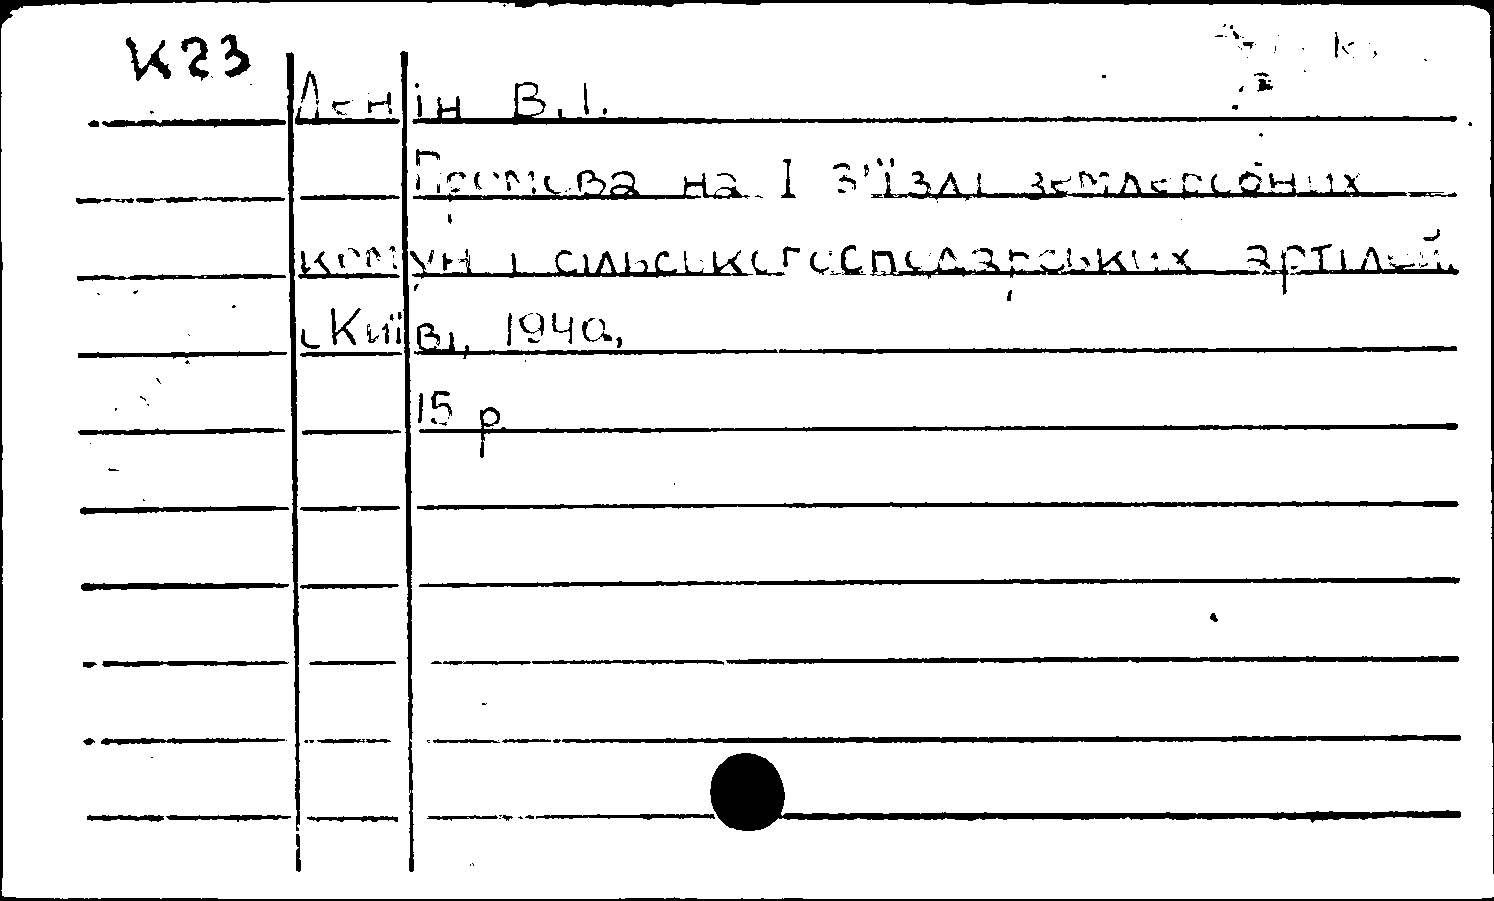 К23
Ленін В.І.
Промова на І з'їзді землеробних
комун і сільськогосподарських артілей.
Київ, 1940,
15 р